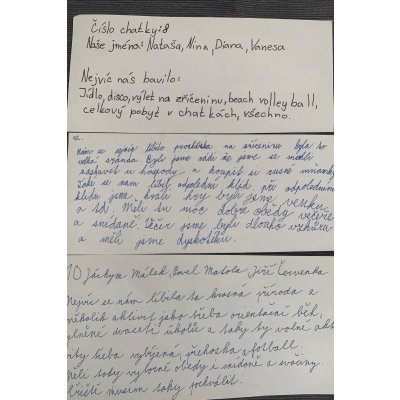 Číslo chatky:8
Naše jména: Nataša, Nina, Diana, Vanesa
Nejvíc nás bavilo:
Jídlo, disco, výlet na zříceninu, beach volleyball,
celkový pobyt v chatkách, všechno.
Nám se nejvíc líbila procházka na zříceninu byla to
velká sranda. Byli jsme rádi že jsme se mohli
zastavit u hospody, a koupit si různé
Také se nám líbil odpolední klid, při odpoledním
klidu jsme hráli hry byli jsme venku
a td. Měli tu moc dobré obědy večeře
a snídaně. Večer jsme byli dlouho vzhůru
a měli jsme dyskotéku.
10 Jáchym Málek, Pavel Matola, Jiří Červenka
Nejvíc se nám líbila ta krásná příroda a
několik aktivit jako třeba orientační běh,
plnění dvaceti úkolů a taky ty volné akti
vity třeba vybíjená, přehazka a fotball.
Měli taky výborné obědy i snídaně a svačiny.
Příště musím taky pochválit.